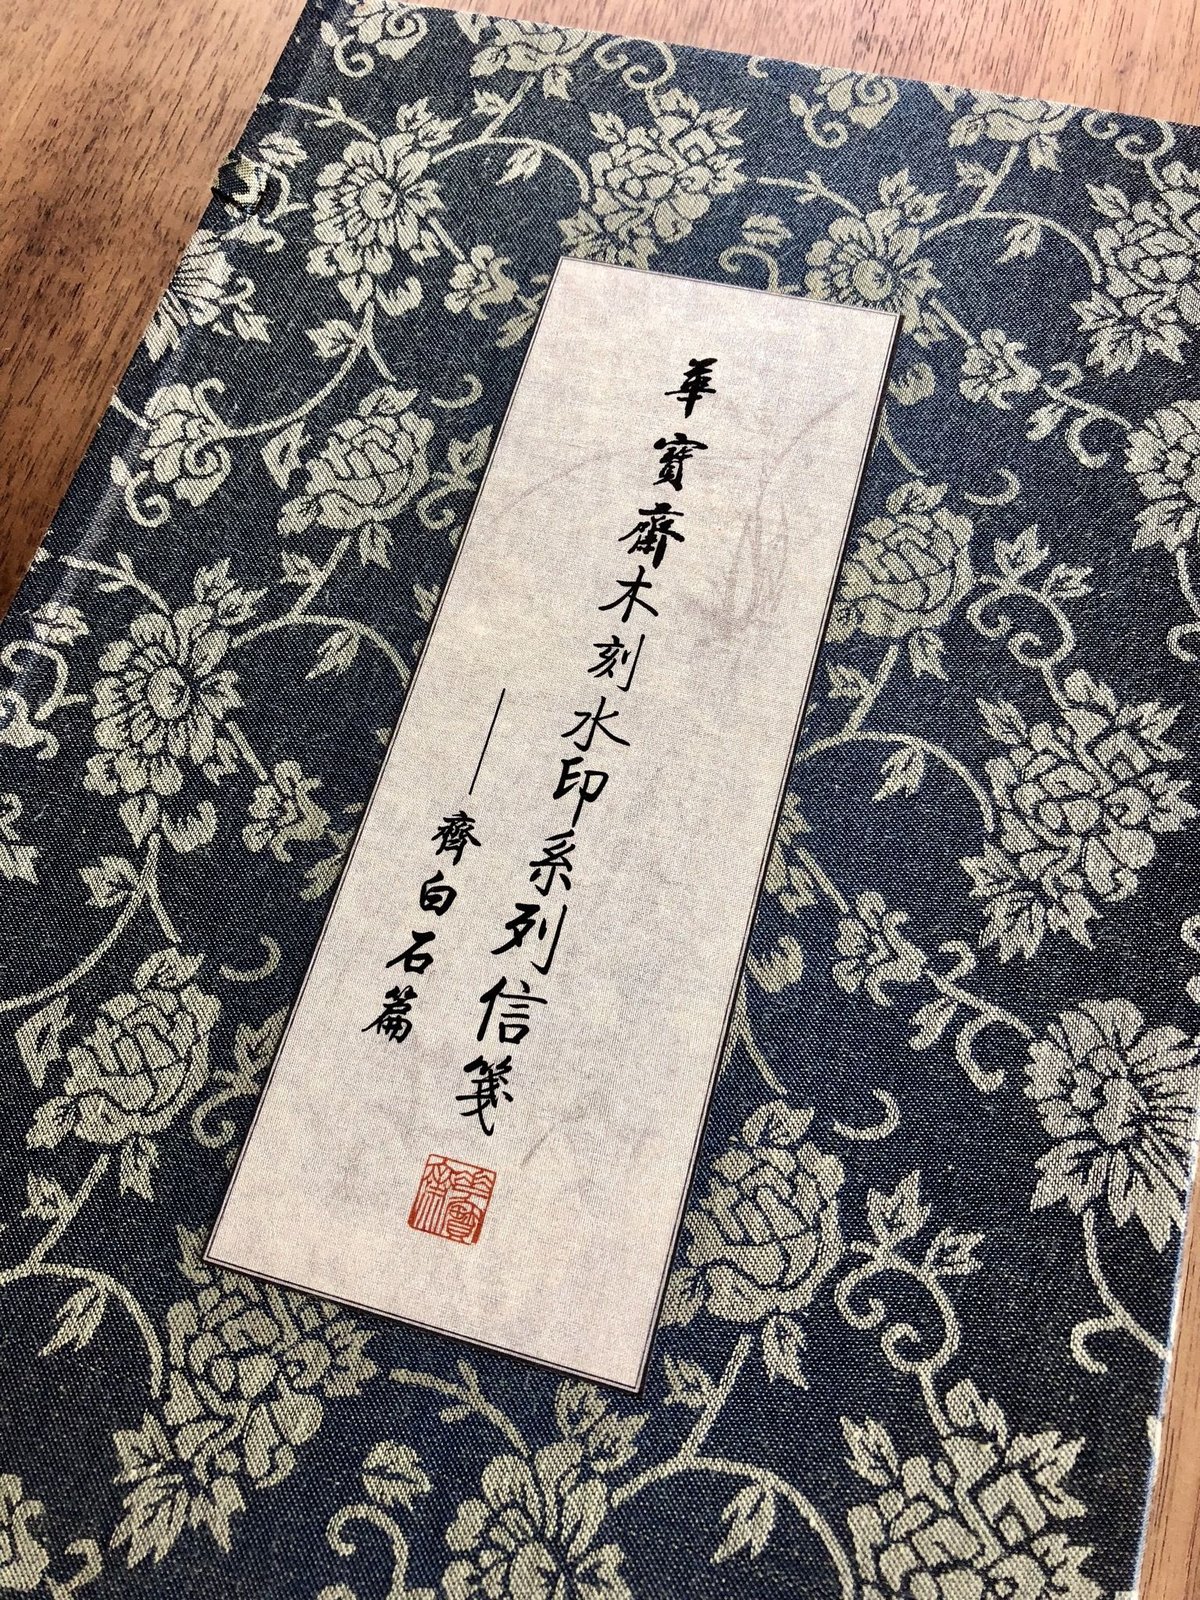 華寶齋木刻水印系列信箋
——齊白石篇
華寶齋